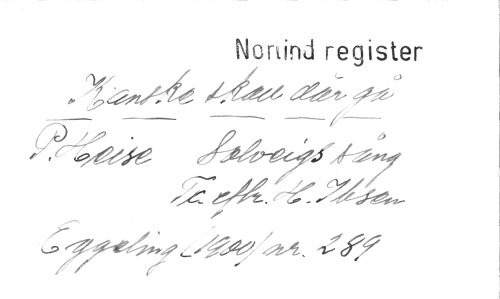 Norlind register
Kanske skall där gå
P. Heise Solveigs sång
Tr. efter. H. Ibsen
Eggeling (1900) nr. 289